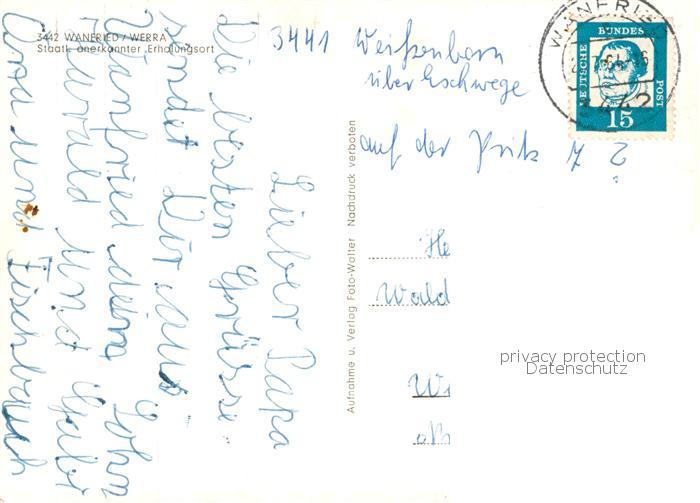 3442 WANFRIED / WERRA
Staatl. anerkannter Erholungsort
Lieber Papa
Die besten Grüsse
sendet Dir aus
Wanfried dein Sohn
Harald und Gabi
und Fischbach
Aufnahme u. Verlag Foto-Walter Nachdruck verboten
3441 Weißenborn
über Eschwege
auf der 7 ?
He
Wald
Wi
WANFRIED
3442
DEUTSCHE BUNDESPOST
15
privacy protection
Datenschutz